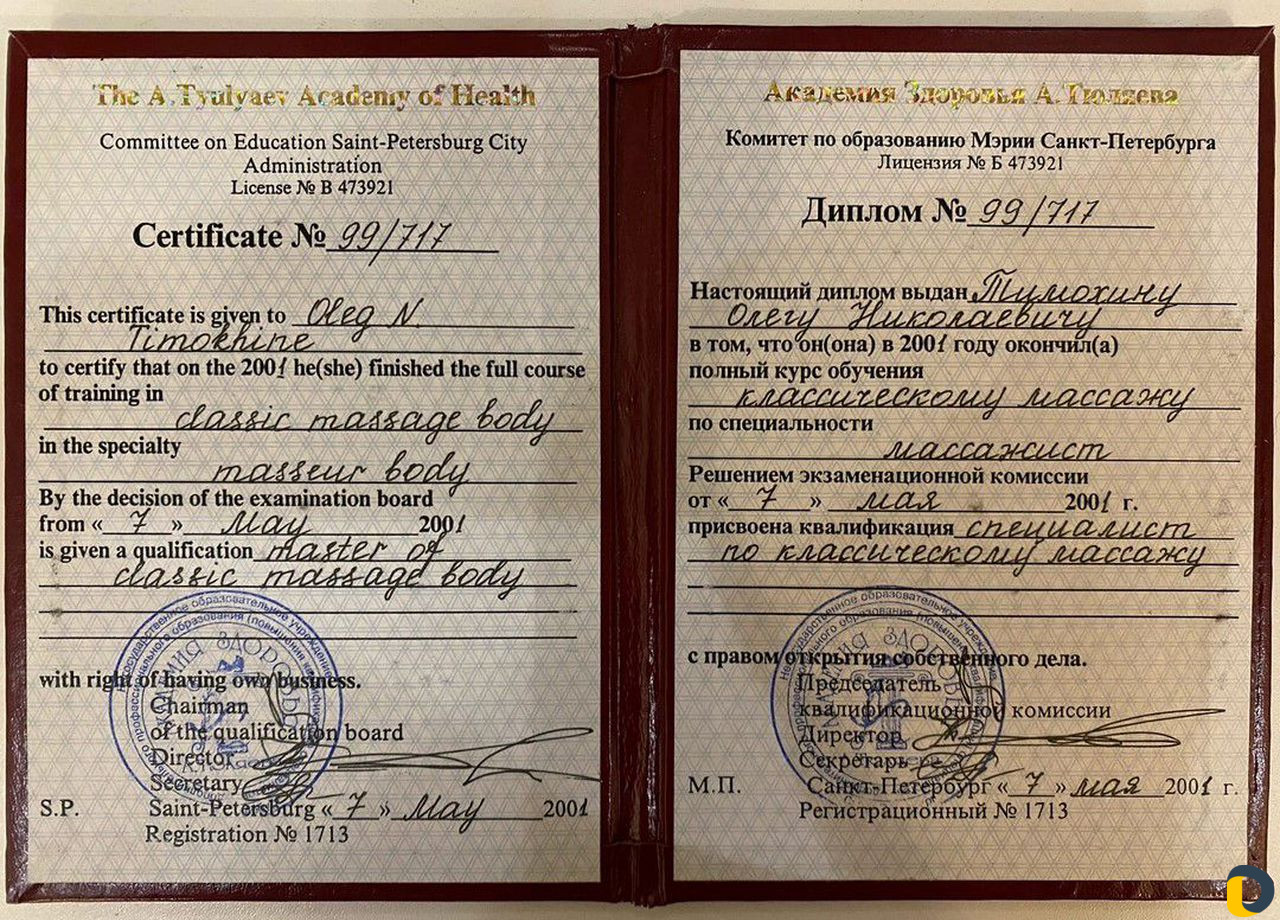 The A.Tyulyaev Academy of Health
Committee on Education Saint-Petersburg City
Administration
License № B 473921
Certificate № 99/717
This certificate is given to Oleg N.
Timokhine
to certify that on the 2001 he(she) finished the full course
of training in
classic massage body
in the specialty
masseur body
By the decision of the examination board
from « 7 » May 2001
is given a qualification master of
classic massage body
with right of having own business.
Chairman
of the qualification board
Director
Secretary
S.P. Saint-Petersburg « 7 » May 2001
Registration № 1713
Академия Здоровья А.Тюляева
Комитет по образованию Мэрии Санкт-Петербурга
Лицензия № Б 473921
Диплом № 99/717
Настоящий диплом выдан Тимохину
Олегу Николаевичу
в том, что он(она) в 2001 году окончил(а)
полный курс обучения
классическому массажу
по специальности
массажист
Решением экзаменационной комиссии
от « 7 » мая 2001 г.
присвоена квалификация специалист
по классическому массажу
с правом открытия собственного дела.
Председатель
квалификационной комиссии
Директор
Секретарь
М.П. Санкт-Петербург « 7 » мая 2001 г.
Регистрационный № 1713